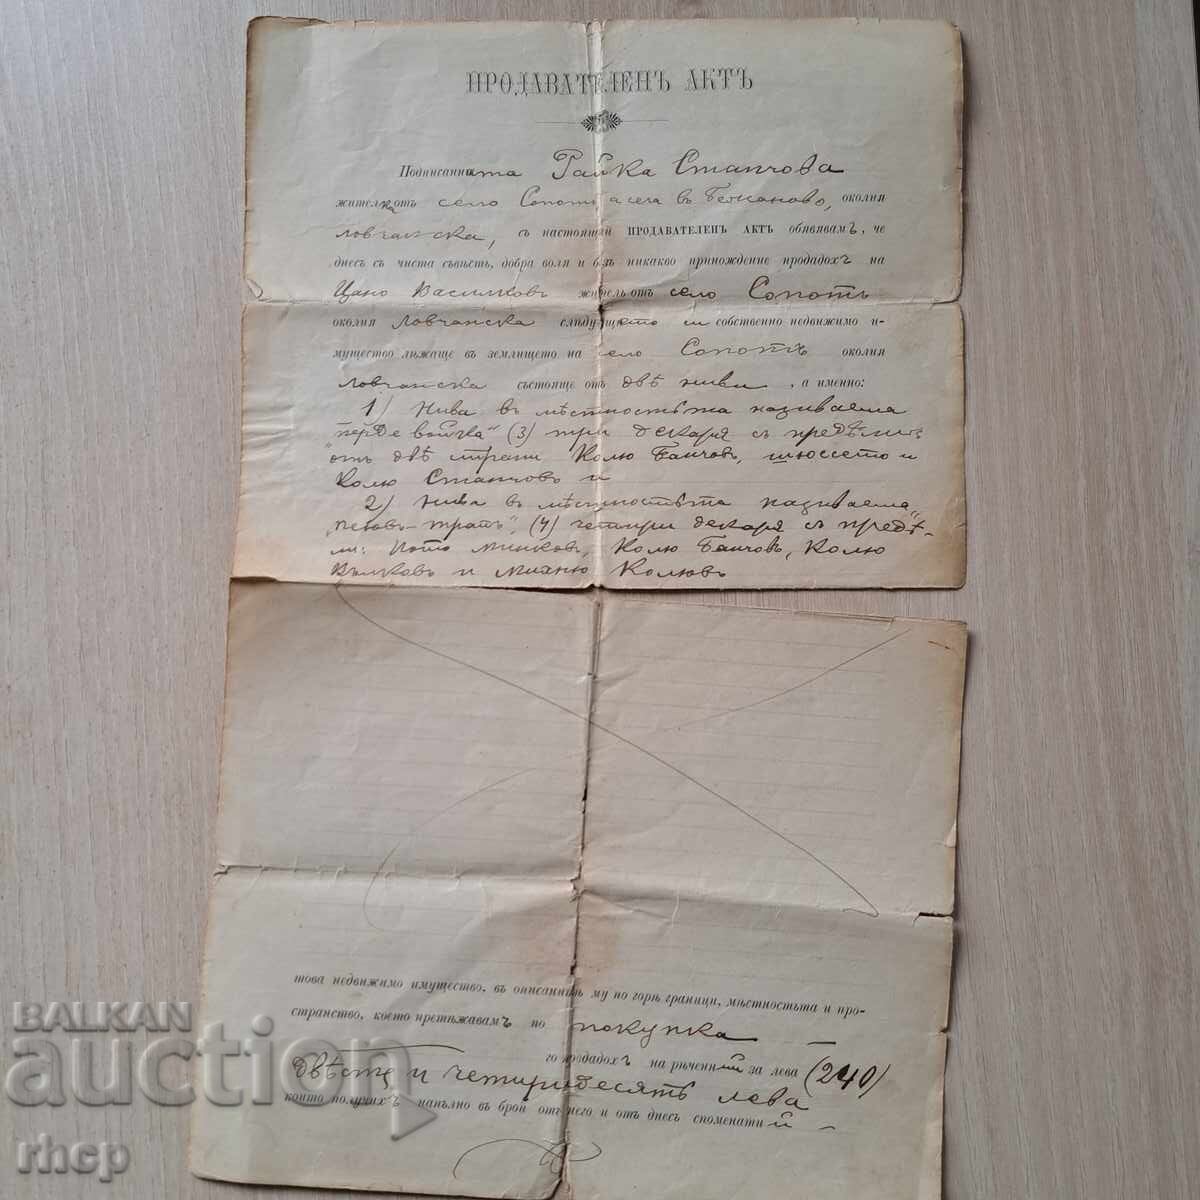 ПРОДАВАТЕЛЕНЪ АКТЪ
Подписанната Райка Станчова
жителка отъ село Сопотъ а сега въ Бежаново, околия
Ловчанска, съ настоящий ПРОДАВАТЕЛЕНЪ АКТЪ обявявамъ, че
днесъ съ чиста съвѣсть, добра воля и безъ никакво принождение продадохъ на
Цано Василковъ жительотъ село Сопотъ
околия Ловчанска слѣдующето си собственно недвижимо и-
мущество лѣжаще въ землището на село Сопотъ околия
Ловчанска състояще отъ двѣ ниви, а именно:
1) Нива въ мѣстностьта називаема
(3) три декаря съ предѣли:
отъ двѣ страни Колю Банчов, шюссето и
Колю Станчовъ и
2) Нива въ мѣстностьта називаема
(4) четири декаря съ предѣ-
ли: Йото Минковъ, Колю Банчовъ, Колю
Вълковъ и Михню Колювъ
това недвижимо имущество, въ описаннитѣ му по горѣ граници, мѣстностьта и про-
странство, което претѣжавамъ по покупка
го продадохъ на рѣченний за лева (240)
двѣстѣ и четиридесять лева
които получихъ напълно въ брой отъ него и отъ днесъ споменатий
BALKAN
auction
rhcp